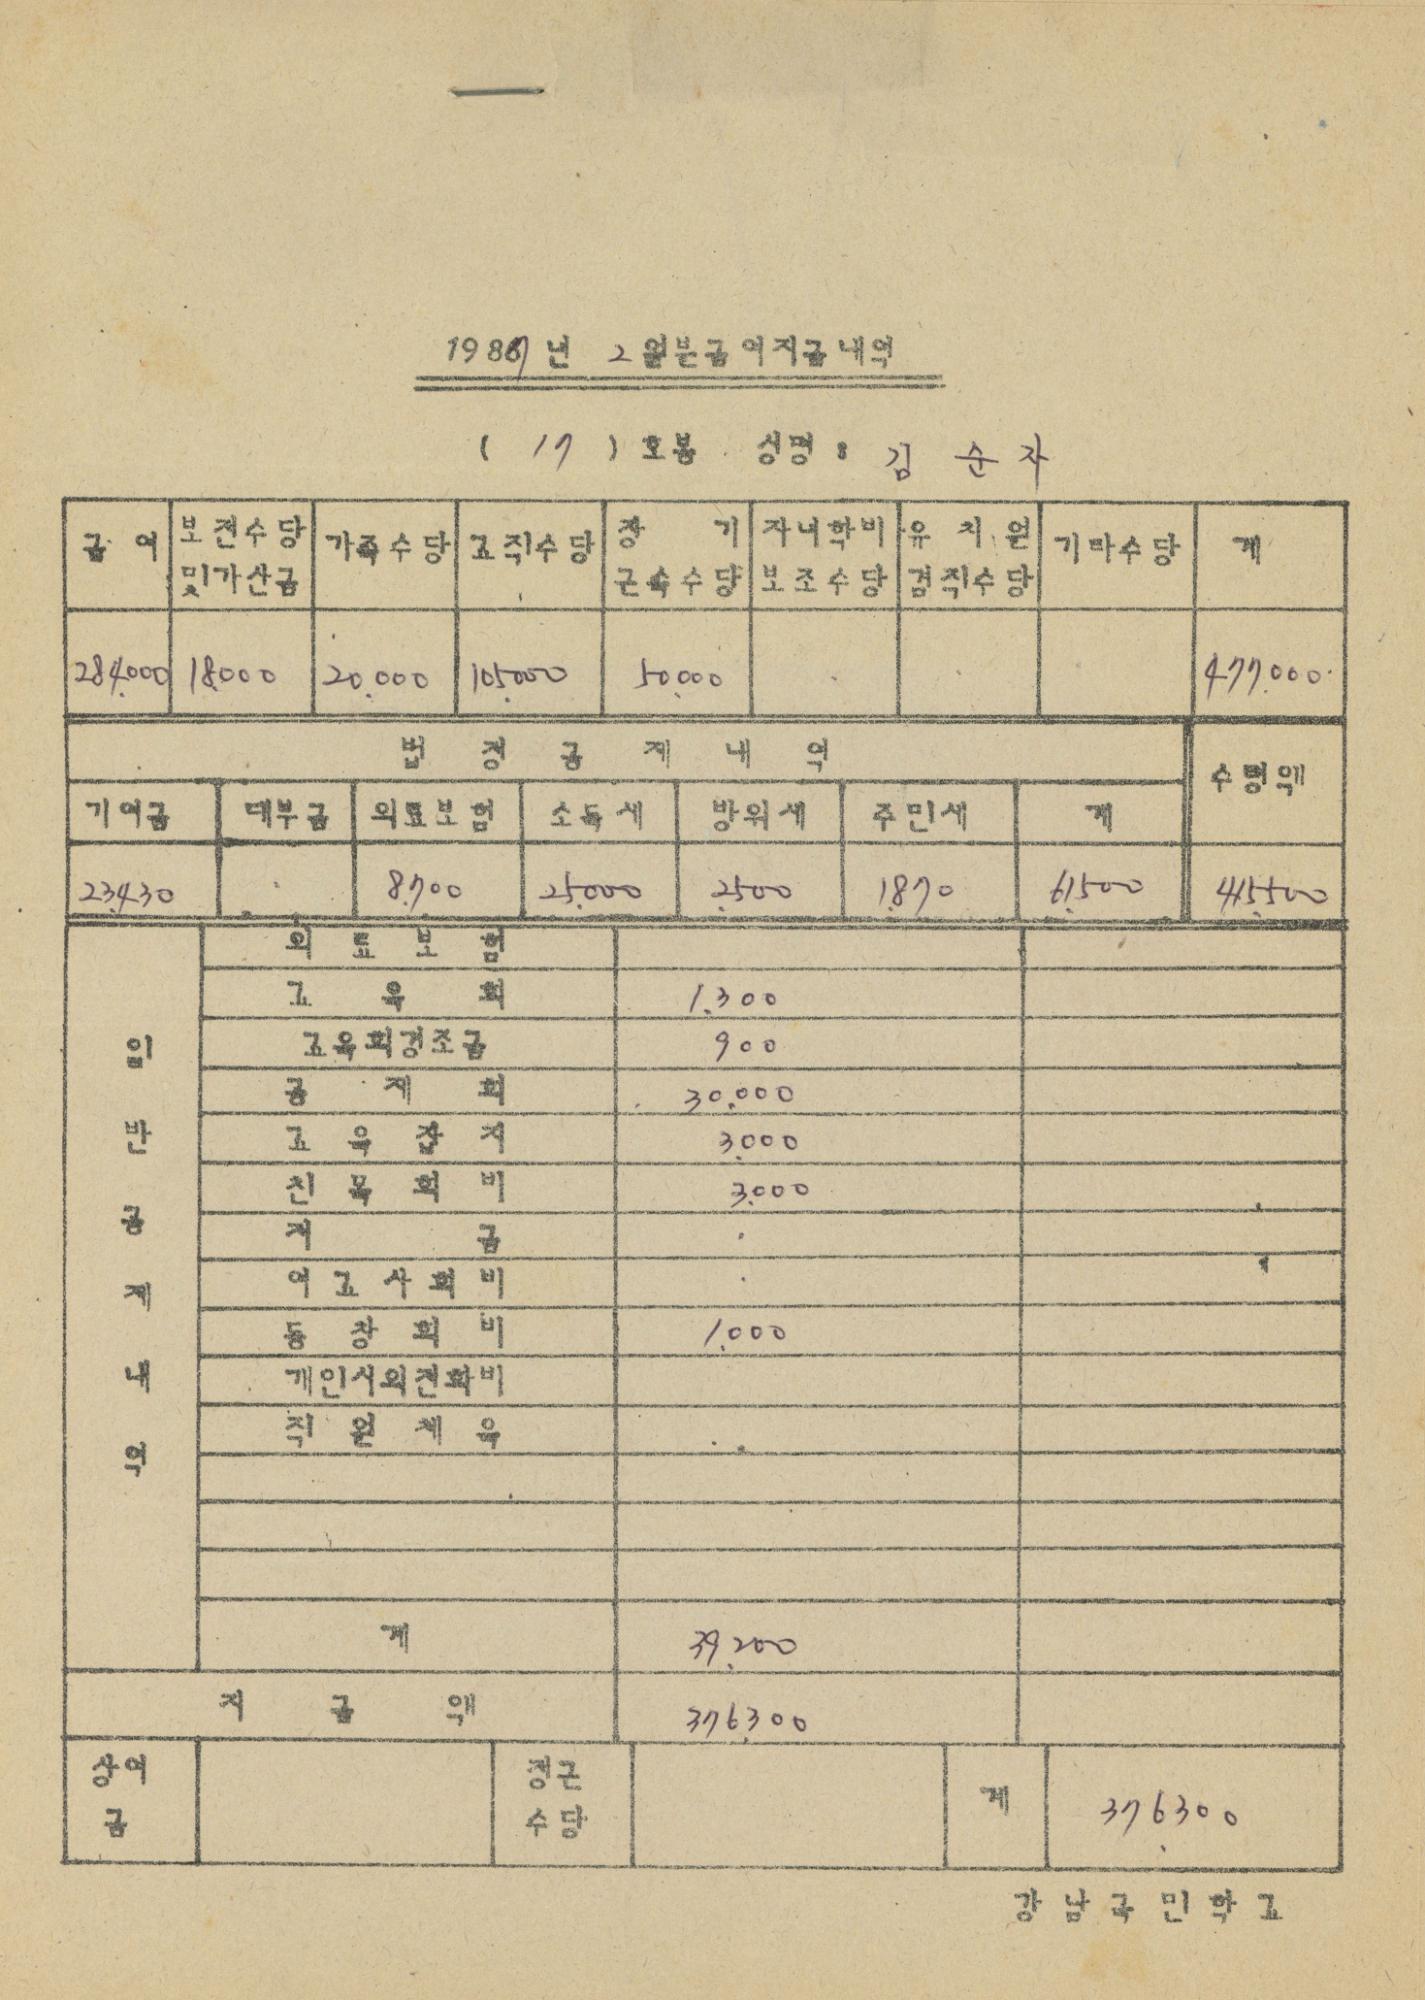 1987년 2월분급여지급내역
( 17 ) 호봉 성명: 김순자
급여 보전수당 및가산금 가족수당 교직수당 장기 근속수당 자녀학비 보조수당 유치원 겸직수당 기타수당 계
284.000 18.000 20.000 105.000 50.000 477.000
법정공제내역 수령액
기여금 대부금 의료보험 소득세 방위세 주민세 계
23.430 8.700 25.000 2.500 1.870 61.500 415.500
일반공제내역
의료보험
교육회 1.300
교육회경조금 900
공제회 30.000
교육잡지 3.000
친목회비 3.000
저금
여교사회비
동창회비 1.000
개인시외전화비
직원체육
계 39.200
지급액 376.300
상여금 정근수당 계 376.300
강남국민학교